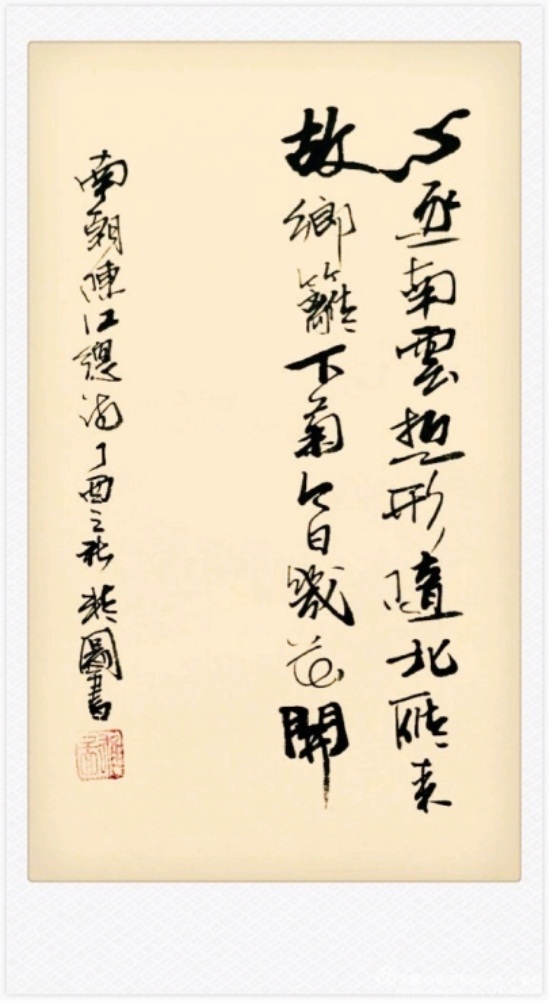 心逐南雲逝形隨北雁来
故鄉籬下菊今日幾花開
南朝陳江總詩丁酉之秋圖書